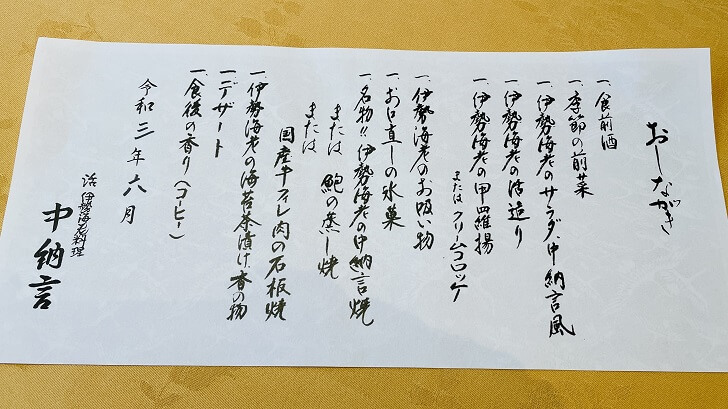 おしながき
一、食前酒
一、季節の前菜
一、伊勢海老のサラダ、中納言風
一、伊勢海老の活造り
一、伊勢海老の甲羅揚
またはクリームコロッケ
一、伊勢海老のお吸い物
一、お口直しの氷菓
一、名物!!伊勢海老の中納言焼
または 鮑の蒸し焼
または
国産牛フィレ肉の石板焼
一、伊勢海老の海苔茶漬け、香の物
一、デザート
一、食後の香り(コーヒー)
令和三年六月
活伊勢海老料理
中納言